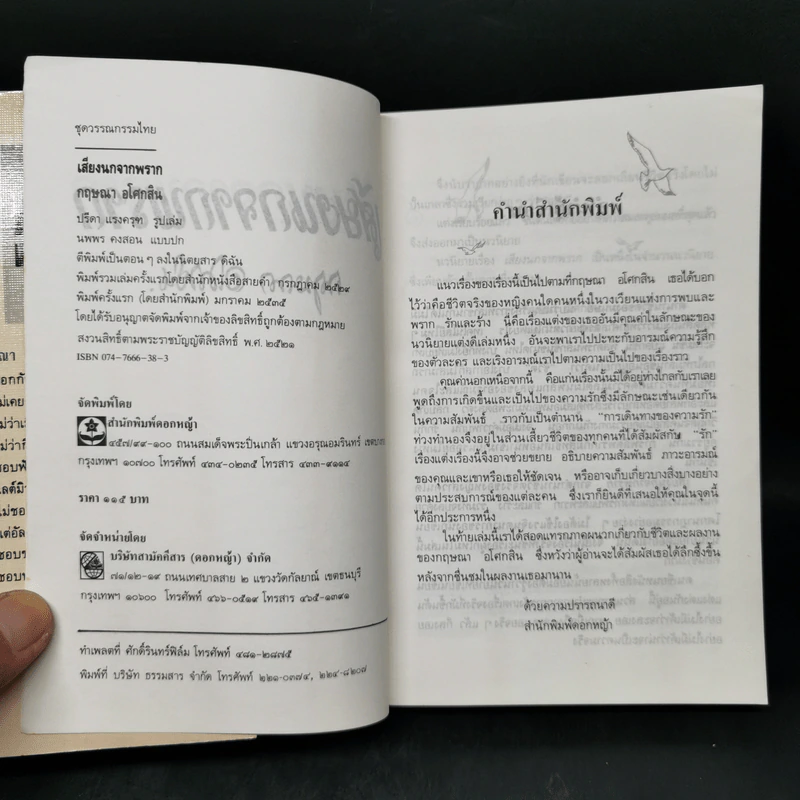 ชุดวรรณกรรมไทย
เสียงนกจากพราก
กฤษณา อโศกสิน
ปรีดา แรงครุฑ รูปเล่ม
นพพร คงสอน แบบปก
ตีพิมพ์เป็นตอน ๆ ลงในนิตยสาร ดิฉัน
พิมพ์รวมเล่มครั้งแรกโดยสำนักหนังสือสายคำ กรกฎาคม ๒๕๒๙
พิมพ์ครั้งแรก (โดยสำนักพิมพ์) มกราคม ๒๕๓๕
โดยได้รับอนุญาตจัดพิมพ์จากเจ้าของลิขสิทธิ์ถูกต้องตามกฎหมาย
สงวนสิทธิ์ตามพระราชบัญญัติลิขสิทธิ์ พ.ศ. ๒๕๒๑
ISBN 074-7666-38-3
จัดพิมพ์โดย
สำนักพิมพ์ดอกหญ้า
๔๕๗/๙๙-๑๐๐ ถนนสมเด็จพระปิ่นเกล้า แขวงอรุณอมรินทร์ เขต
กรุงเทพฯ ๑๐๗๐๐ โทรศัพท์ ๔๓๔-๐๒๓๕ โทรสาร ๔๓๓-๙๑๑๔
ราคา ๑๑๕ บาท
จัดจำหน่ายโดย
บริษัทสามัคคีสาร (ดอกหญ้า) จำกัด
๗๑/๑๒-๑๙ ถนนเทศบาลสาย ๒ แขวงวัดกัลยาณ์ เขตธนบุรี
กรุงเทพฯ ๑๐๖๐๐ โทรศัพท์ ๔๖๖-๐๕๑๙ โทรสาร ๔๖๕-๑๓๙๑
ทำเพลตที่ ศักดิ์รินทร์ฟิล์ม โทรศัพท์ ๔๘๑-๒๘๗๕
พิมพ์ที่ บริษัท ธรรมสาร จำกัด โทรศัพท์ ๒๒๑-๐๓๗๔, ๒๒๔-๘๒๐๗
คำนำสำนักพิมพ์
แนวเรื่องของเรื่องนี้เป็นไปตามที่กฤษณา อโศกสิน เธอได้บอก
ไว้ว่าคือชีวิตจริงของหญิงคนใดคนหนึ่งในวงเวียนแห่งการพบและ
พราก รักและร้าง นี่คือเรื่องแต่งของเธออันมีคุณค่าในลักษณะของ
นวนิยายแต่งดีเล่มหนึ่ง อันจะพาเราไปปะทะกับอารมณ์ความรู้สึก
ของตัวละคร และเริงอารมณ์เราไปตามความเป็นไปของเรื่องราว
คุณค่านอกเหนือจากนี้ คือแก่นเรื่องนั้นมิได้อยู่ห่างไกลกับเราเลย
พูดถึงการเกิดขึ้นและเป็นไปของความรักซึ่งมีลักษณะเช่นเดียวกัน
ในความสัมพันธ์ ราวกับเป็นตำนาน “การเดินทางของความรัก”
ท่วงทำนองจึงอยู่ในส่วนเสี้ยวชีวิตของทุกคนที่ได้สัมผัสกับ “รัก”
เรื่องแต่งเรื่องนี้จึงอาจช่วยขยาย อธิบายความสัมพันธ์ ภาวะอารมณ์
ของคุณและเขาหรือเธอให้ชัดเจน หรืออาจเก็บเกี่ยวบางสิ่งบางอย่าง
ตามประสบการณ์ของแต่ละคน ซึ่งเราก็ยินดีที่เสนอให้คุณในจุดนี้
ได้อีกประการหนึ่ง
ในท้ายเล่มนี้เราได้สอดแทรกภาคผนวกเกี่ยวกับชีวิตและผลงาน
ของกฤษณา อโศกสิน ซึ่งหวังว่าผู้อ่านจะได้สัมผัสเธอได้ลึกซึ้งขึ้น
หลังจากชื่นชมในผลงานเธอมานาน
ด้วยความปรารถนาดี
สำนักพิมพ์ดอกหญ้า